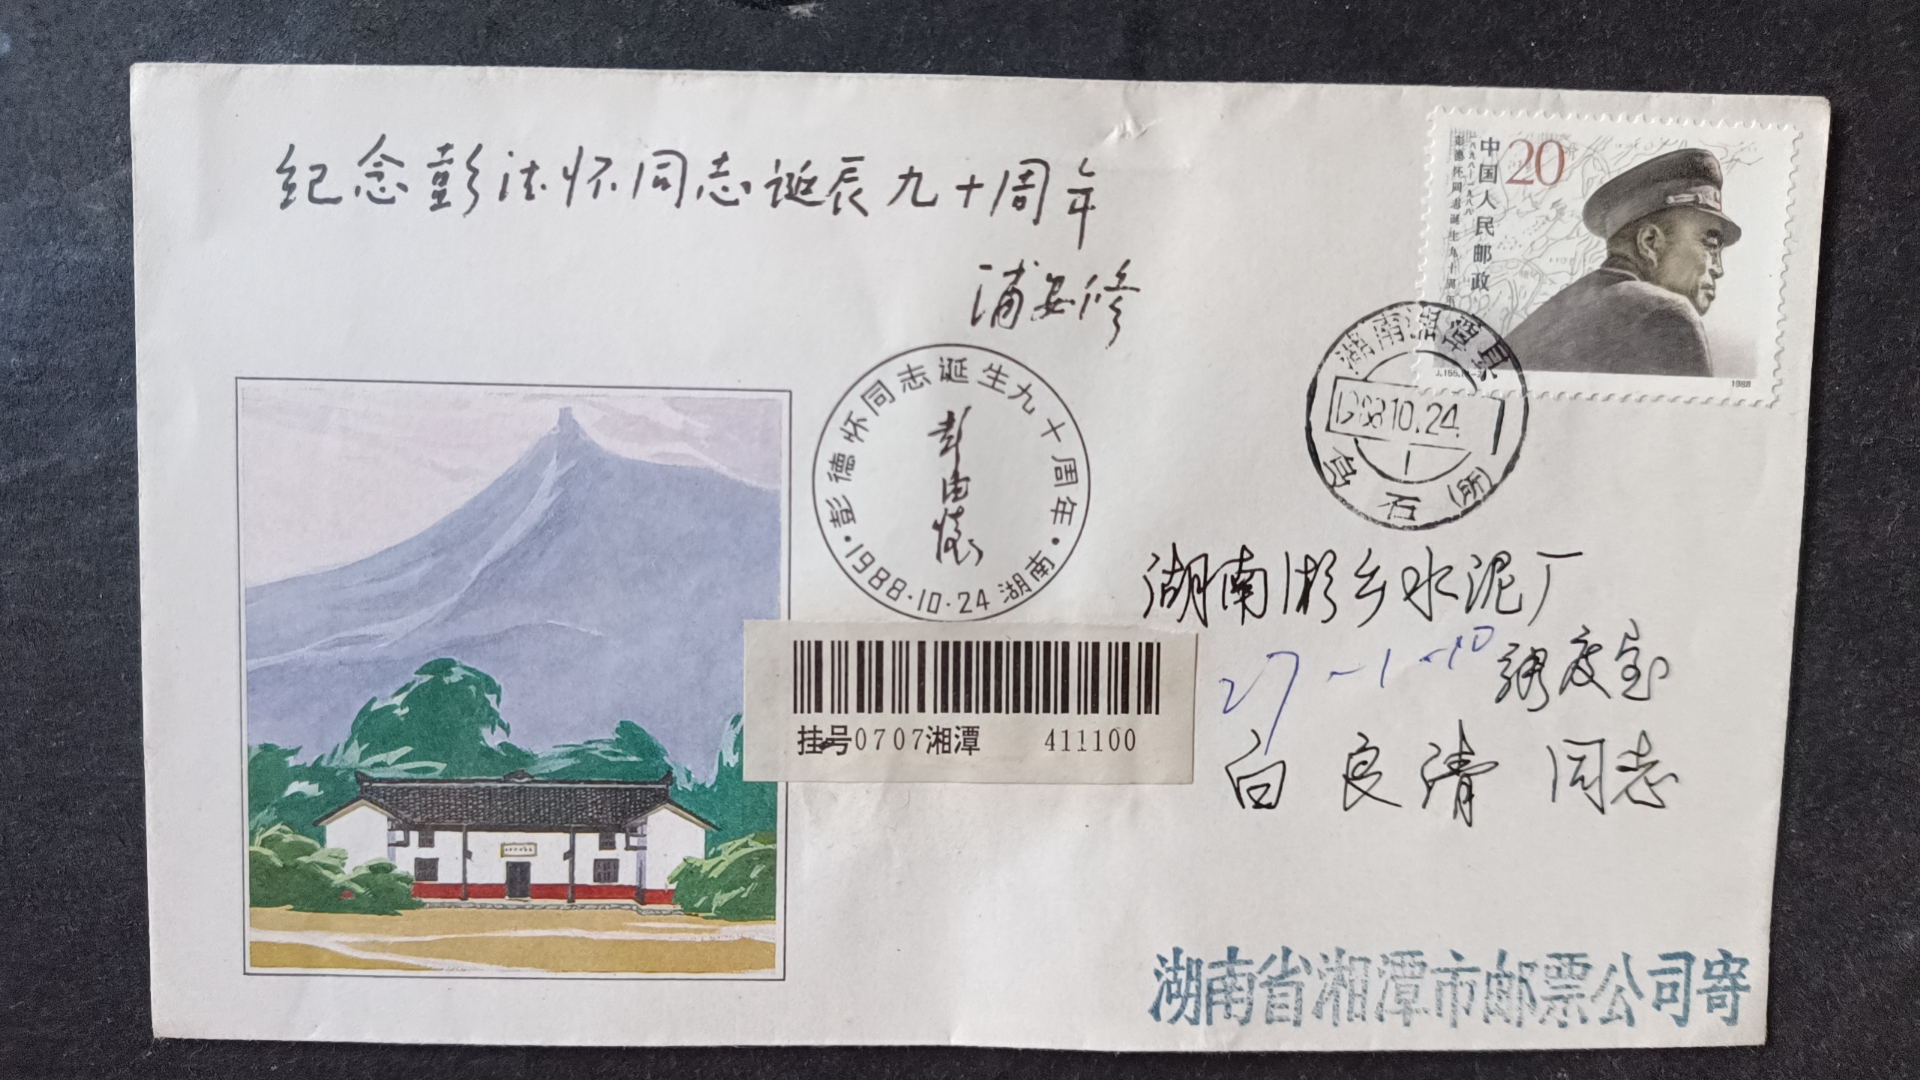 纪念彭德怀同志诞辰九十周年
浦安修
中国人民邮政
20
一八九八—一九八八
彭德怀同志诞生九十周年
J.155.
1988
湖南湘潭县
1988.10.24.
1
乌石(所)
·彭德怀同志诞生九十周年·
彭德怀
1988·10·24 湖南
挂号0707湘潭 411100
湖南湘乡水泥厂
27-1-10
调度室
白良清 同志
湖南省湘潭市邮票公司寄